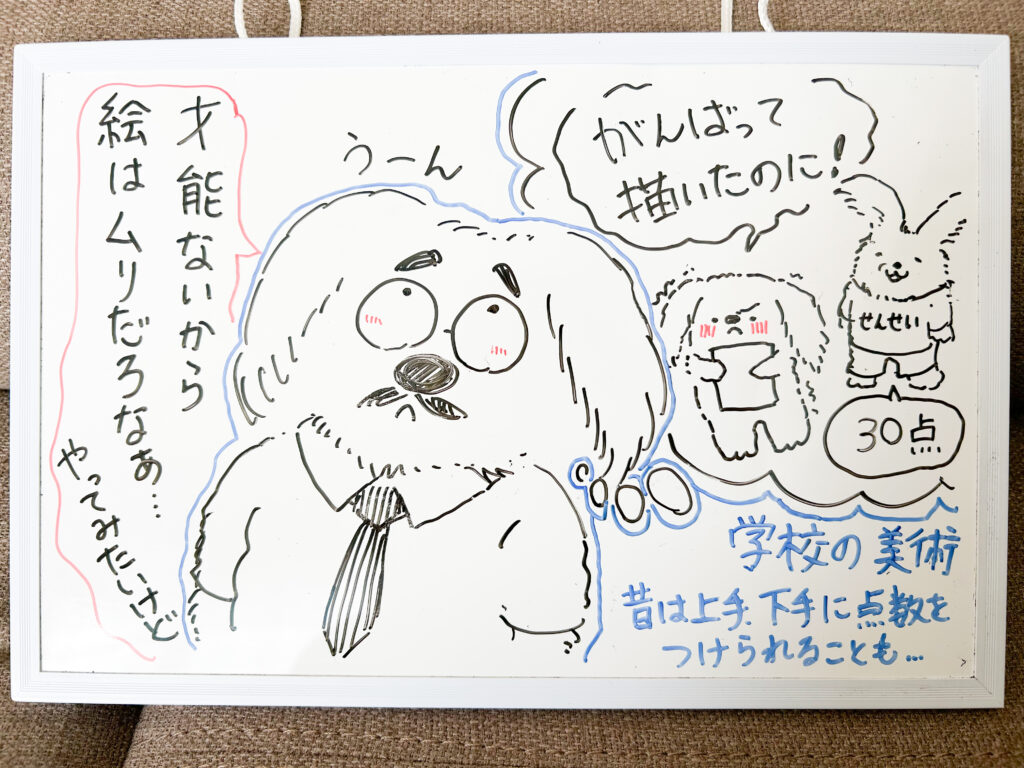 うーん
がんばって
描いたのに!
せんせい
30点
才能ないから
絵はムリだろなぁ…
やってみたいけど
学校の美術
昔は上手、下手に点数を
つけられることも…